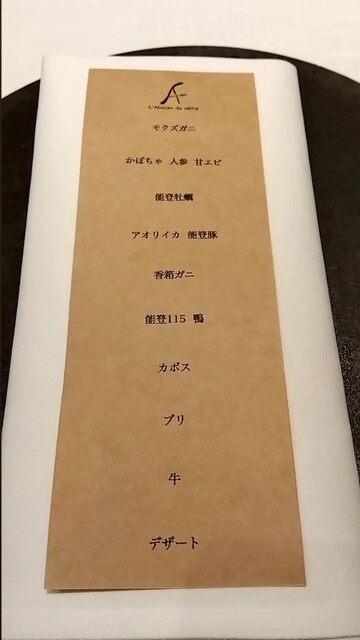 L'Atelier de NOTO
モクズガニ
かぼちゃ 人参 甘エビ
能登牡蠣
アオリイカ 能登豚
香箱ガニ
能登115 鴨
カボス
ブリ
牛
デザート